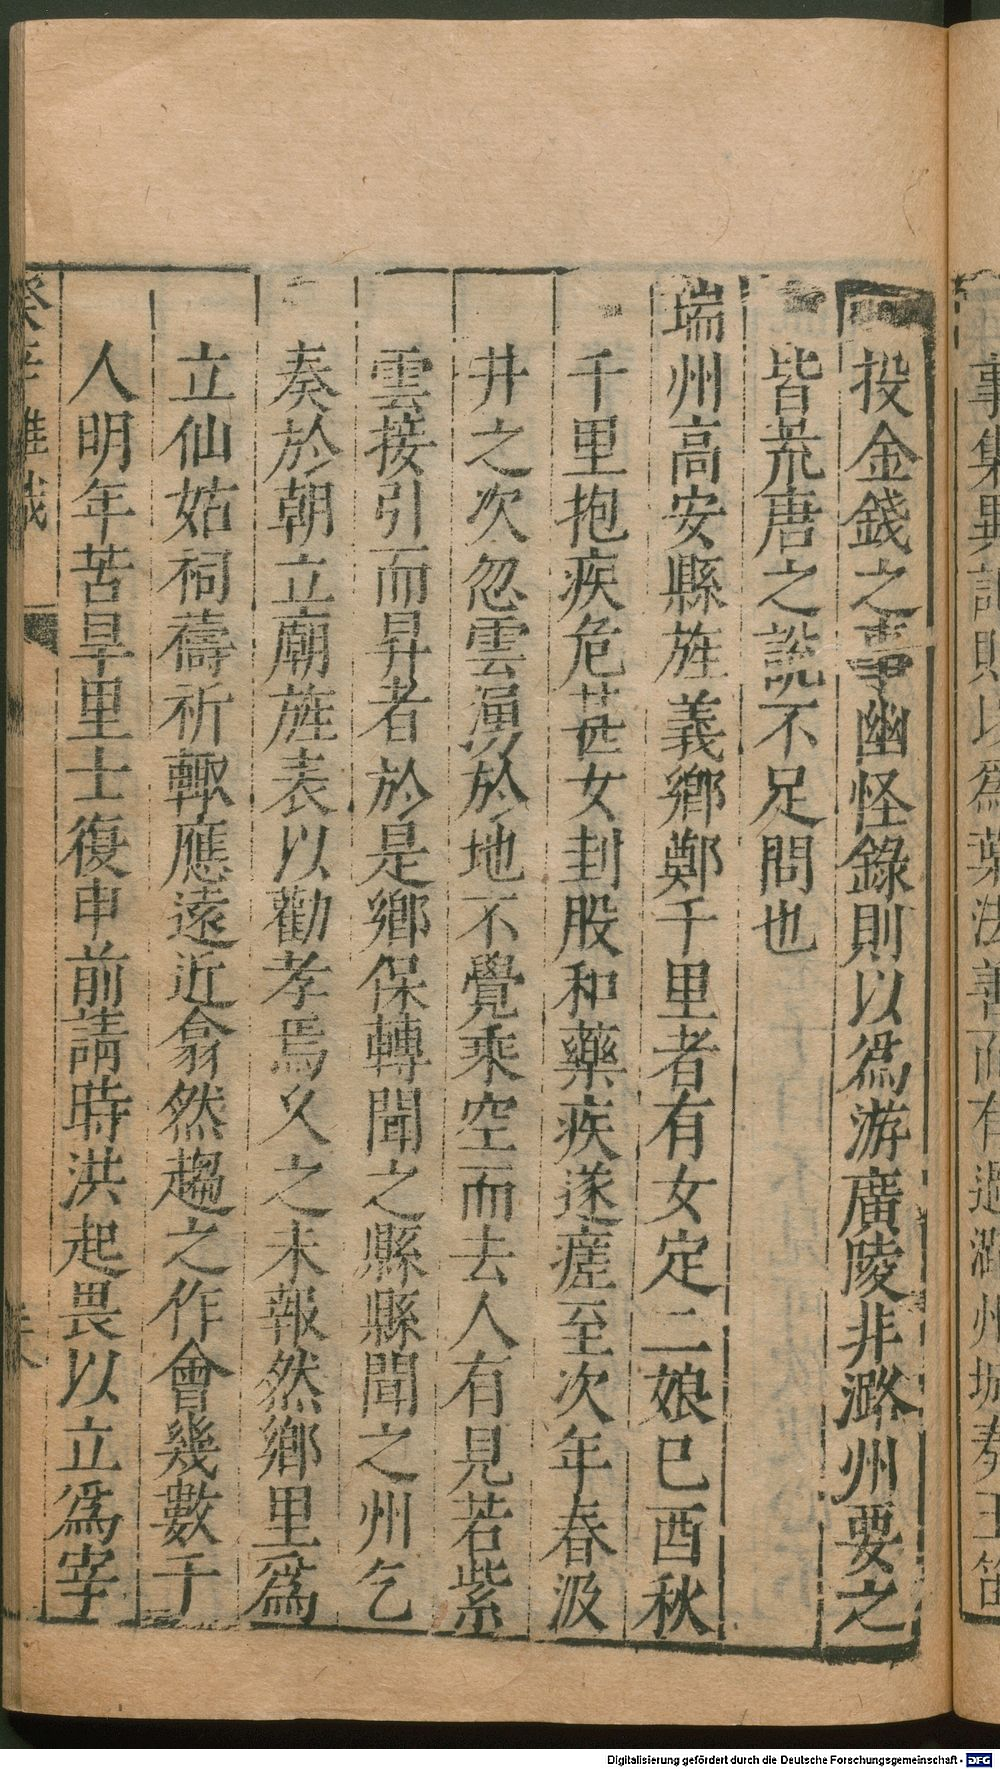 事集異記則以爲葉法善而有過潞州城奏玉笛
投金錢之事幽怪錄則以爲游廣陵非潞州要之
皆荒唐之說不足問也
瑞州高安縣旌義鄉鄭千里者有女定二娘巳酉秋
千里抱疾危甚女刲股和藥疾遂瘥至次年春汲
井之次忽雲湧於地不覺乘空而去人有見若紫
雲接引而昇者於是鄉保轉聞之縣縣聞之州乞
奏於朝立廟旌表以勸孝焉久之未報然鄉里爲
立仙姑祠禱祈輙應遠近翕然趨之作會幾數千
人明年苦旱里士復申前請時洪起畏以立爲宰
癸辛雜識
Digitalisierung gefördert durch die Deutsche Forschungsgemeinschaft - DFG